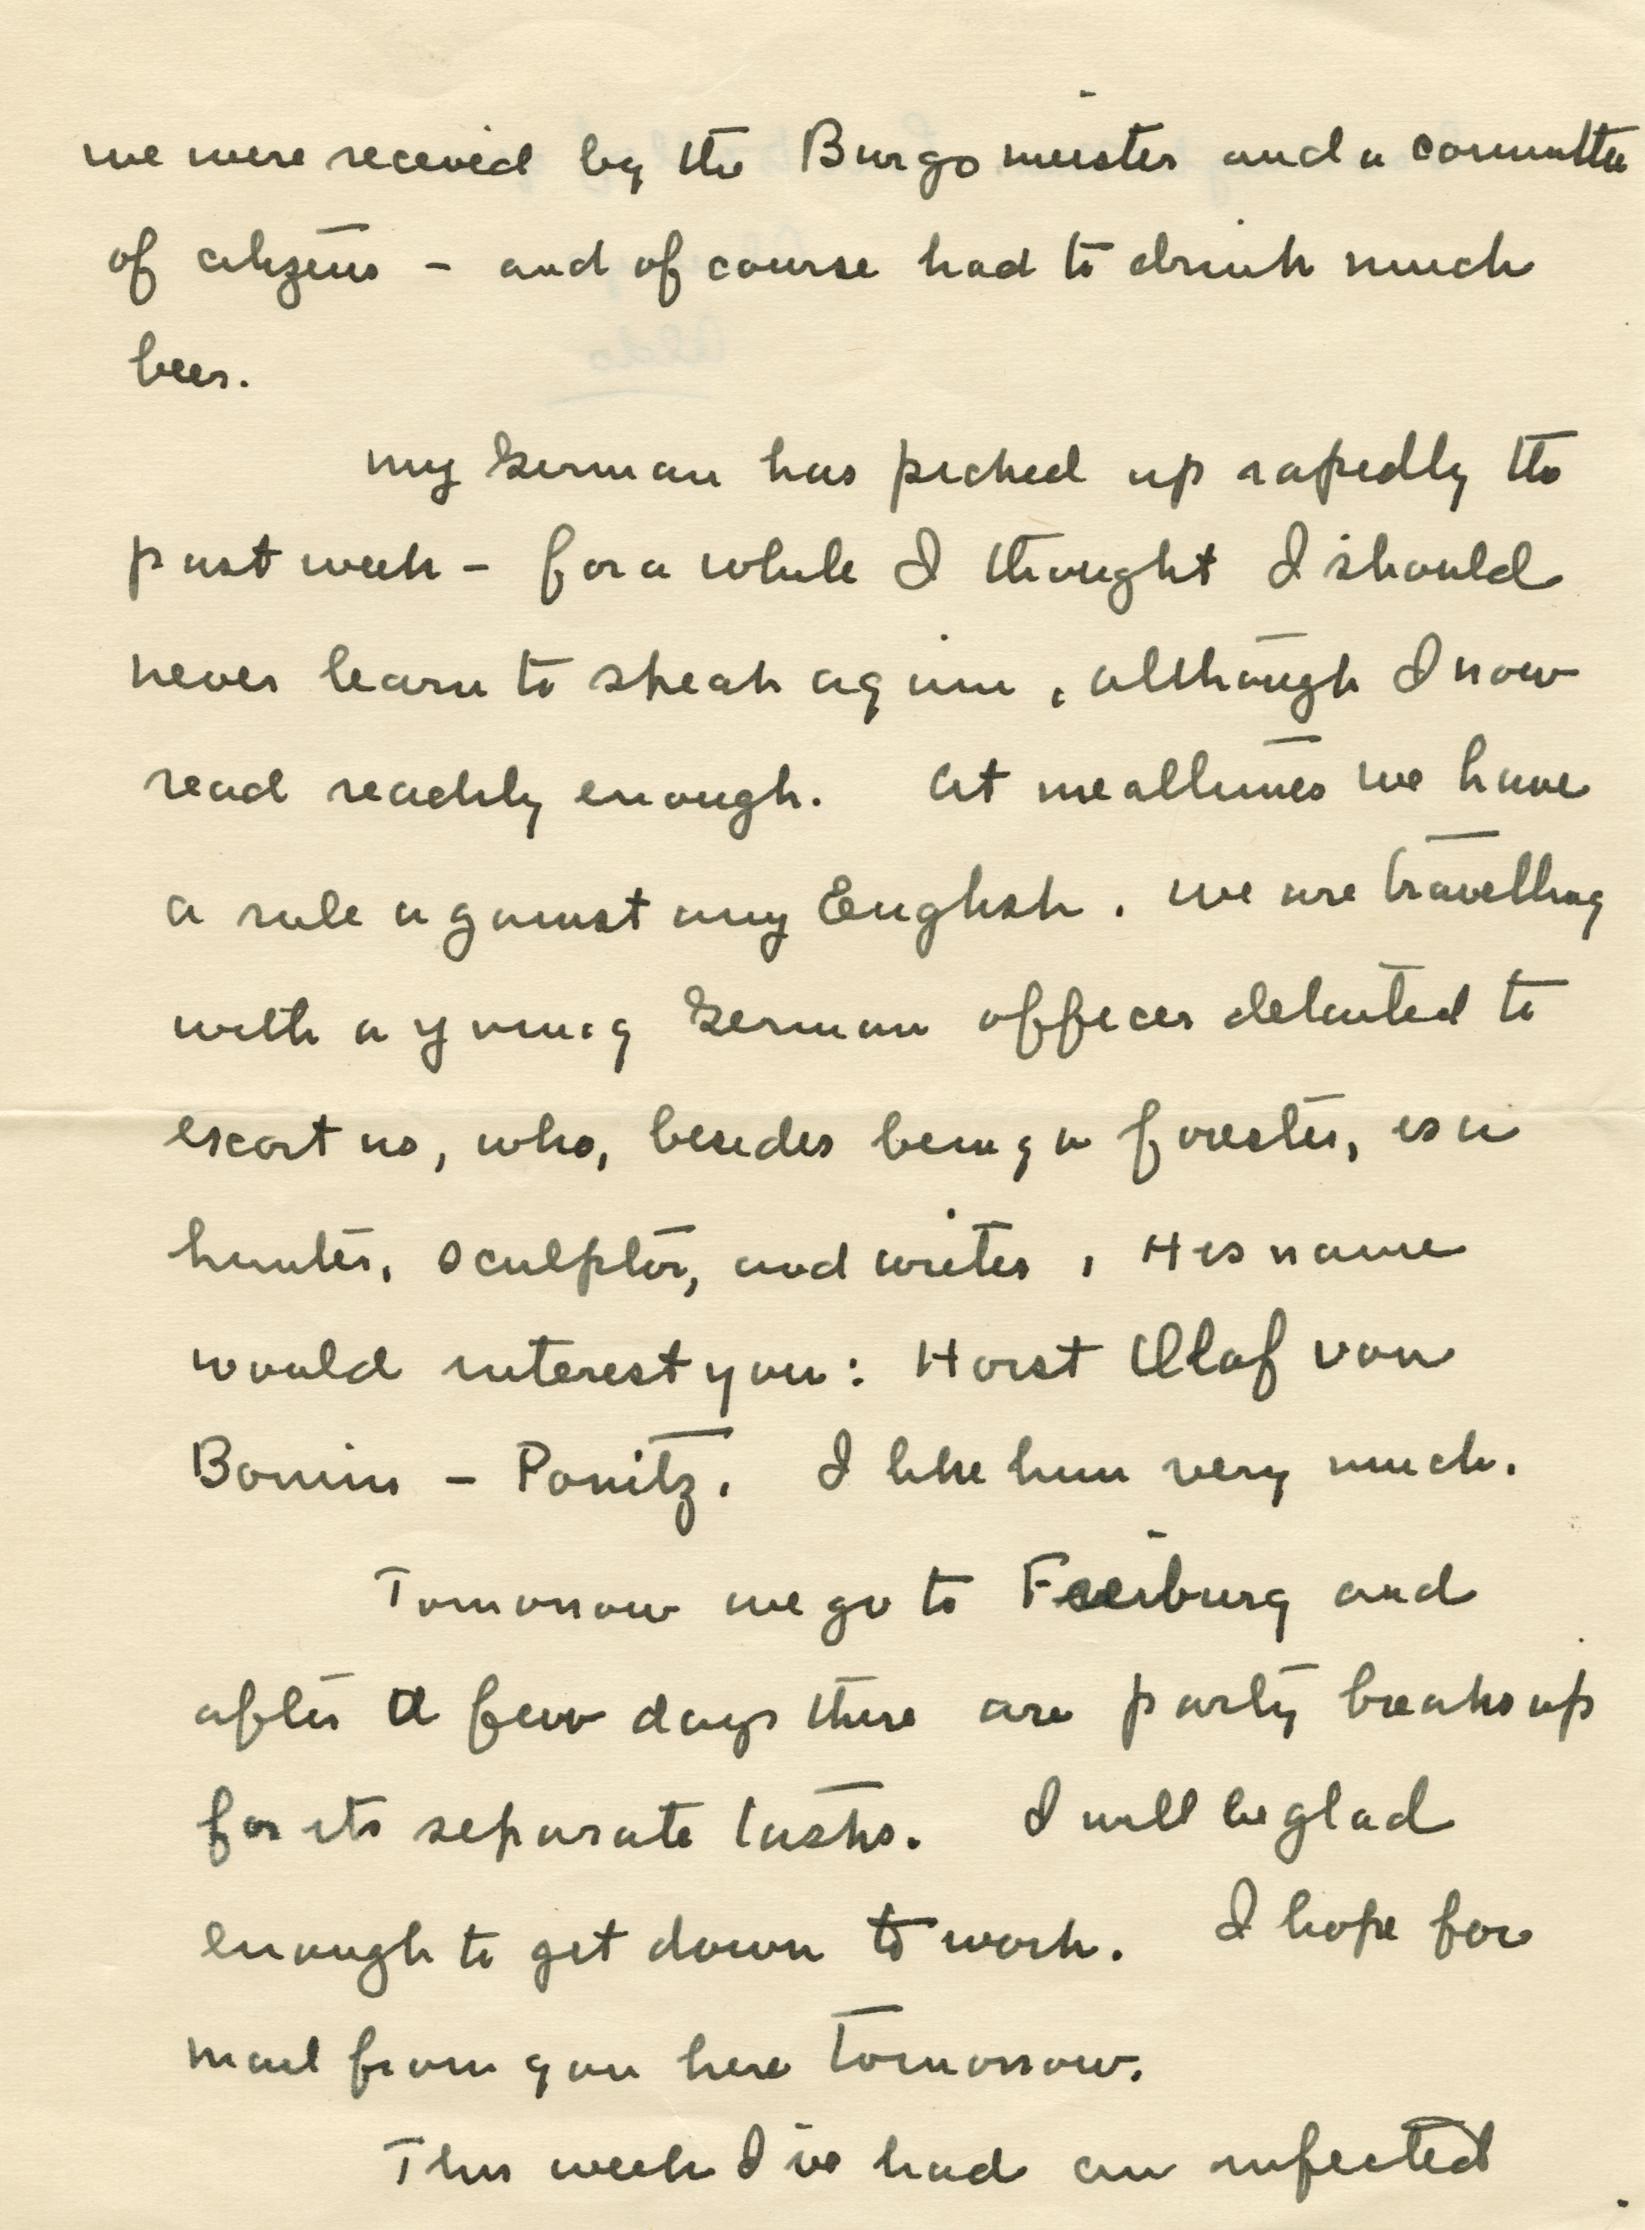 we were received by the Burgomeister and a committee
of citizens – and of course had to drink much
beer.
My German has picked up rapidly the
past week – for a while I thought I should
never learn to speak again, although I now
read readily enough. At mealtimes we have
a rule against any English. We are travelling
with a young German officer detailed to
escort us, who, besides being a forester, is a
hunter, sculptor, and writer. His name
would interest you: Horst Olaf von
Bonin – Ponitz. I like him very much.
Tomorrow we go to Freiburg and
after a few days there are party breaks up
for its separate tasks. I will be glad
enough to get down to work. I hope for
mail from you here tomorrow.
This week I've had an infected